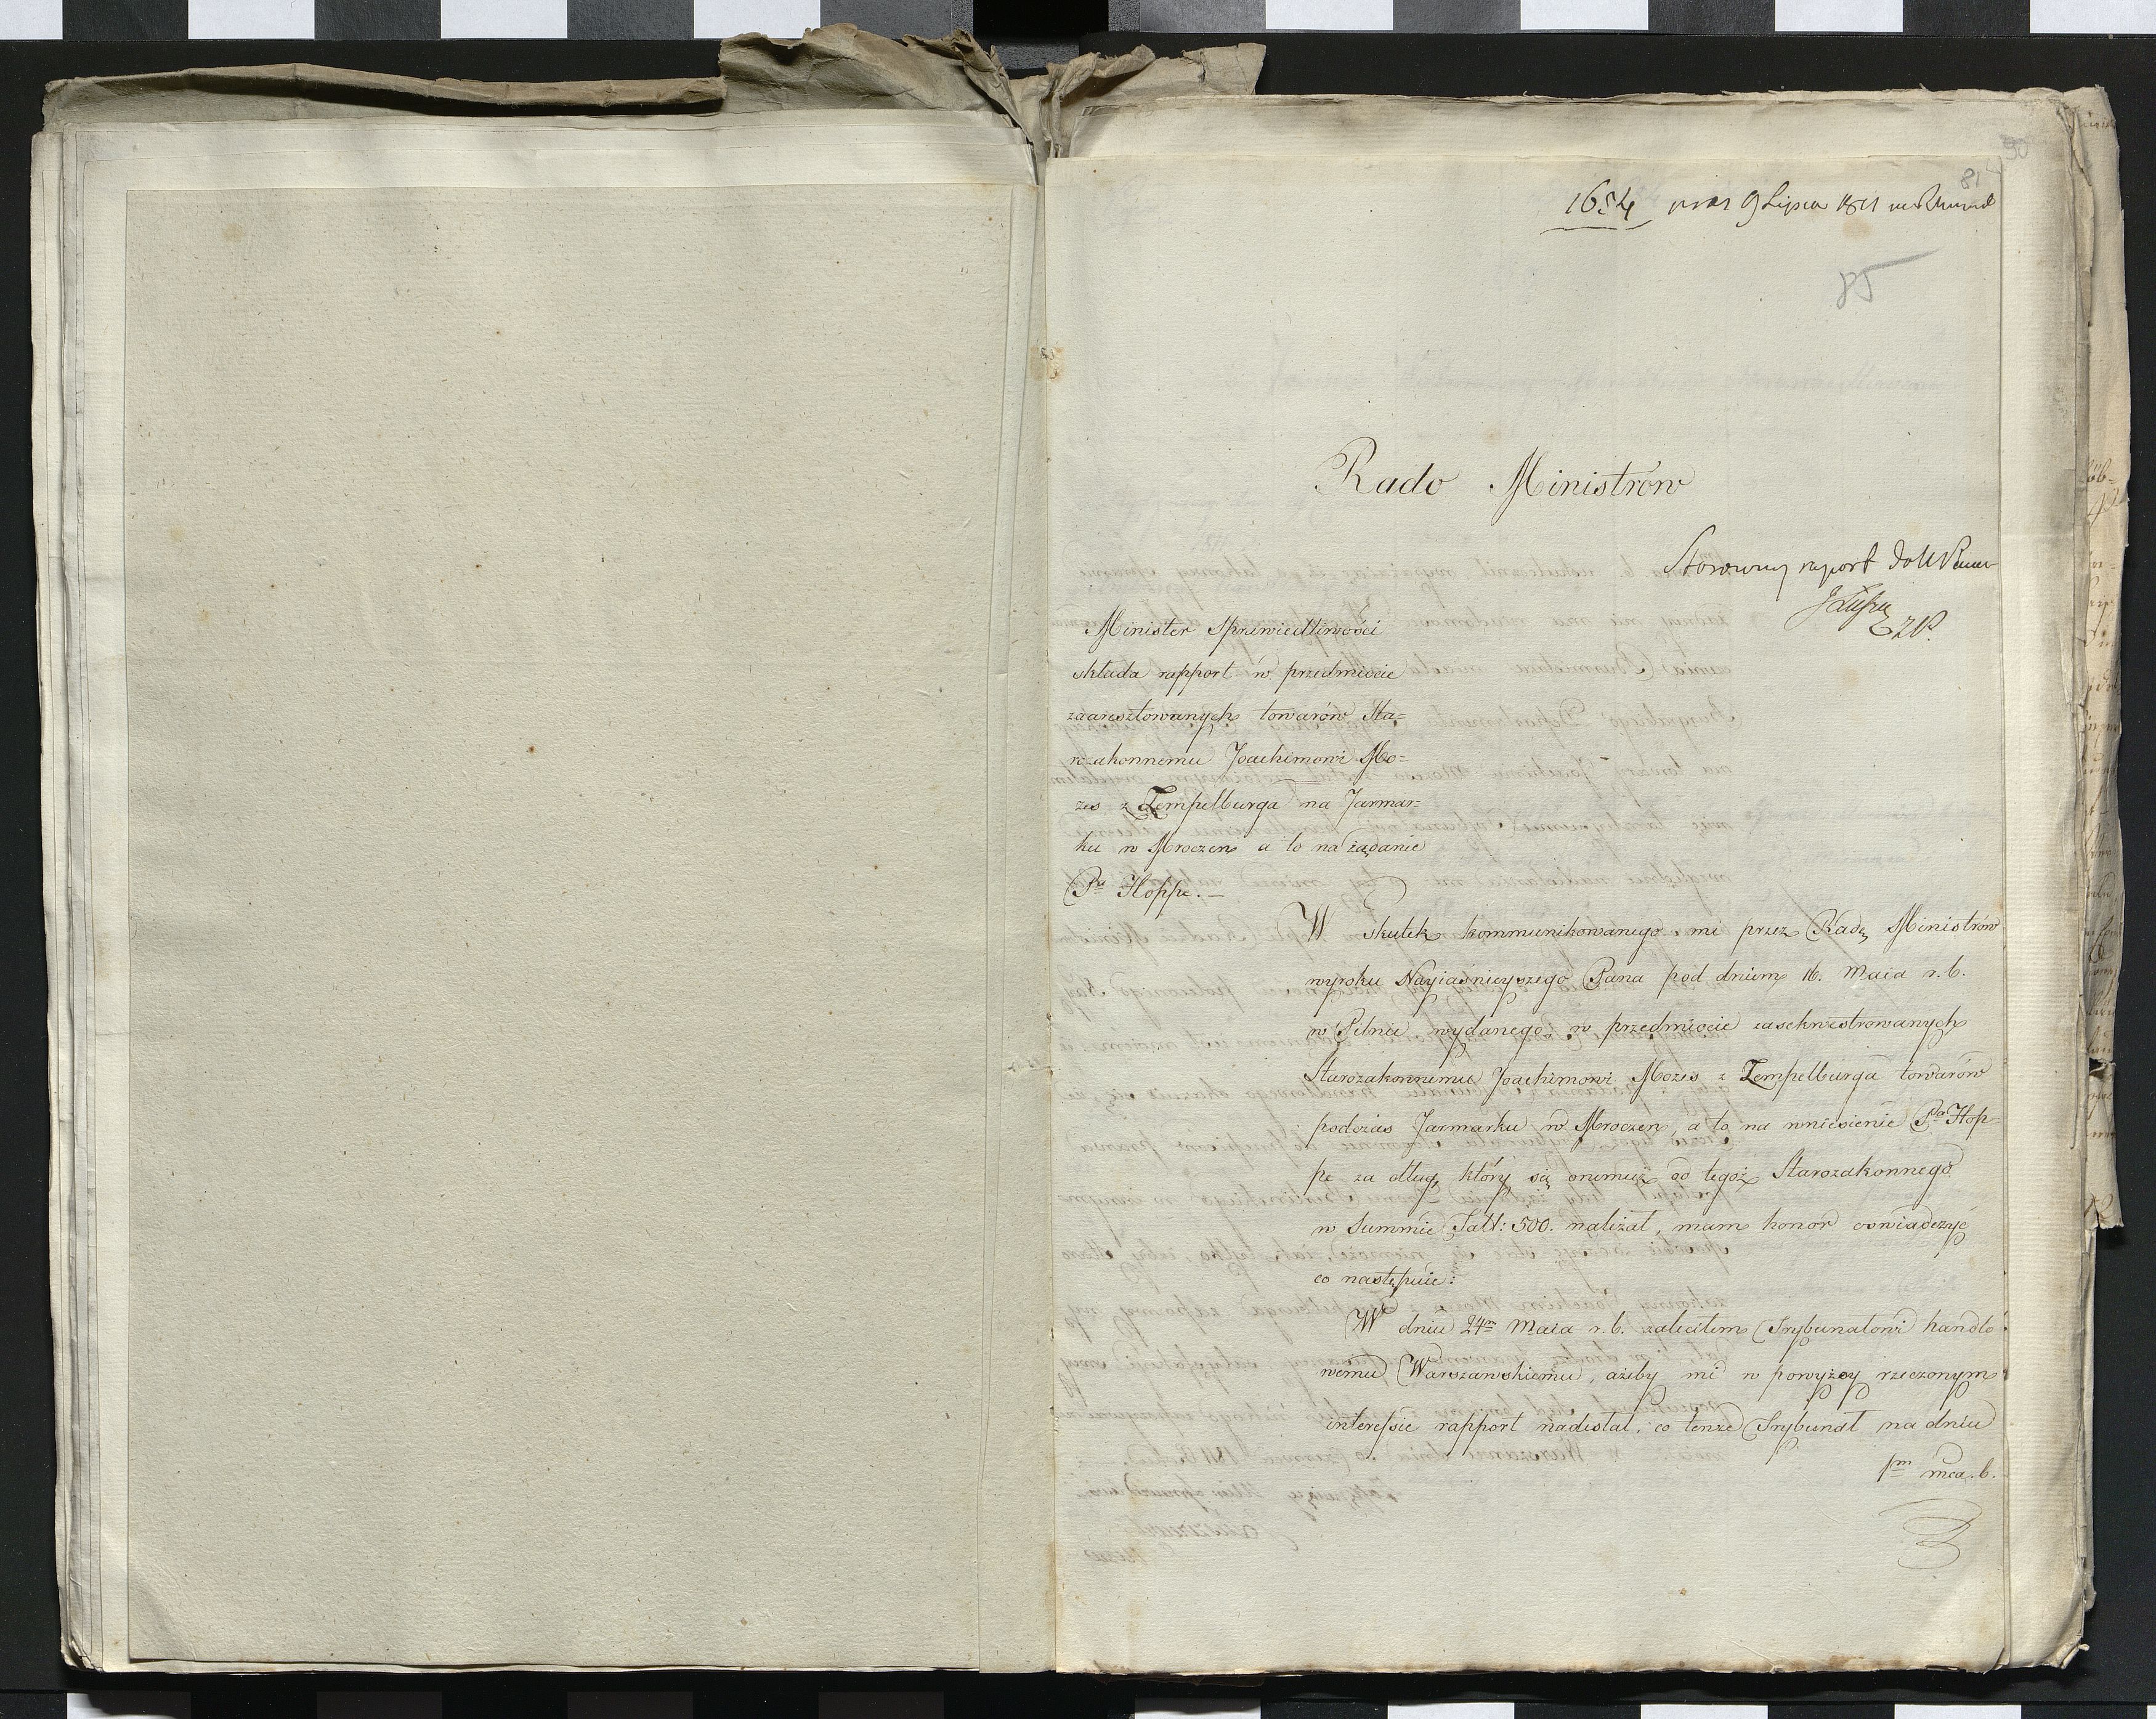 90
81
1654 9 Lipca 1811
85
Rado Ministrow
Stosowny raport do
Minister Sprawiedliwości
składa rapport w przedmiocie
zaaresztowanych towarów Sta=
rozakonnemu Joachimowi Mo=
zes z Zempelburga na Jarmar=
ku w Mroczen a to na żądanie
Pa Hoppe. —
W skutek kommunikowanego mi przez Radę Ministrów
wyroku Nayiaśnieyszego Pana pod dniem 16. Maia r. b.
w Pilnic wydanego w przedmiocie zasekwestrowanych
Starozakonnemu Joachimowi Mozes z Zempelburga towarów
podczas Jarmarku w Mroczen, a to na wniesienie Pa Hop-
pe za dług, który się onemuż od tegoż Starozakonnego
w Summie Tall: 500. należał, mam honor oświadczyć
co następuie:
W dniu 24m Maia r. b. zaleciłem Trybunałowi handlo
wemu Warszawskiemu, ażeby mi w powyżey rzeczonym
interessie rapport nadesłał, co tenże Trybunał na dniu
1m mca. b.